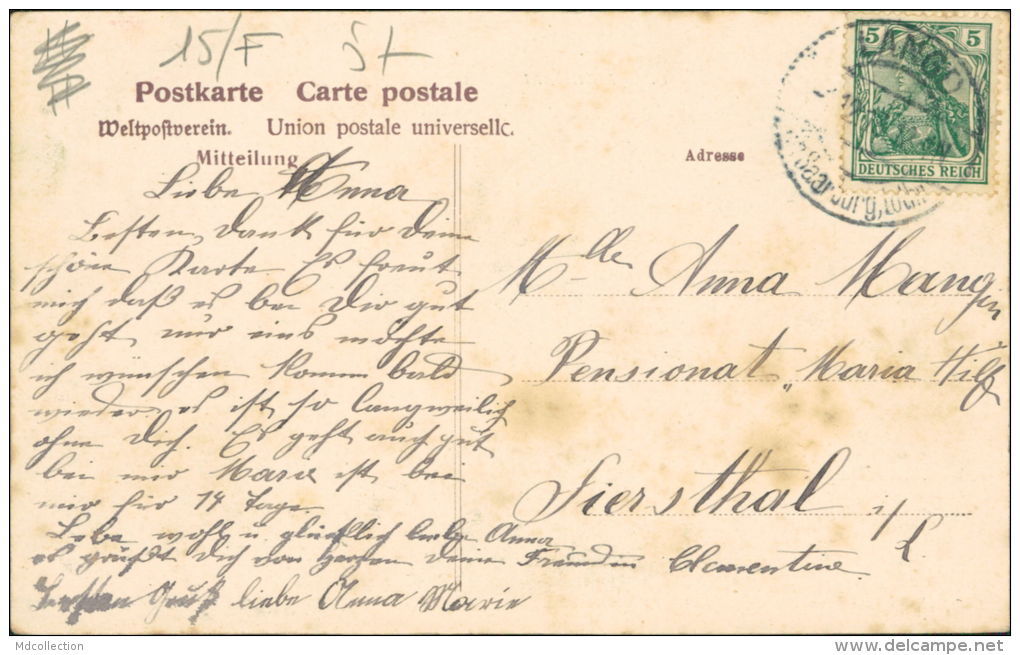 15/F 5+
Postkarte Carte postale
Weltpostverein. Union postale universelle.
Mitteilung
Adresse
5 5
DEUTSCHES REICH
Saarburg, Lothr
Liebe Anna
Besten Dank für Deine
schöne Karte. Es freut
mich daß es bei Dir gut
geht nur eins möchte
ich wünschen komm bald
wieder es ist so langweilig
ohne Dich. Es geht auch gut
bei mir Marie ist bei
mir für 14 Tage.
Lebe wohl u. glücklich liebe Anna
es grüßt Dich von Herzen Deine Freundin Clementine.
Besten Gruß liebe Anna Marie
Mlle Anna Mang
Pensionat „Maria Hilf
Siersthal
i/L
Mdcollection
delcampe.net